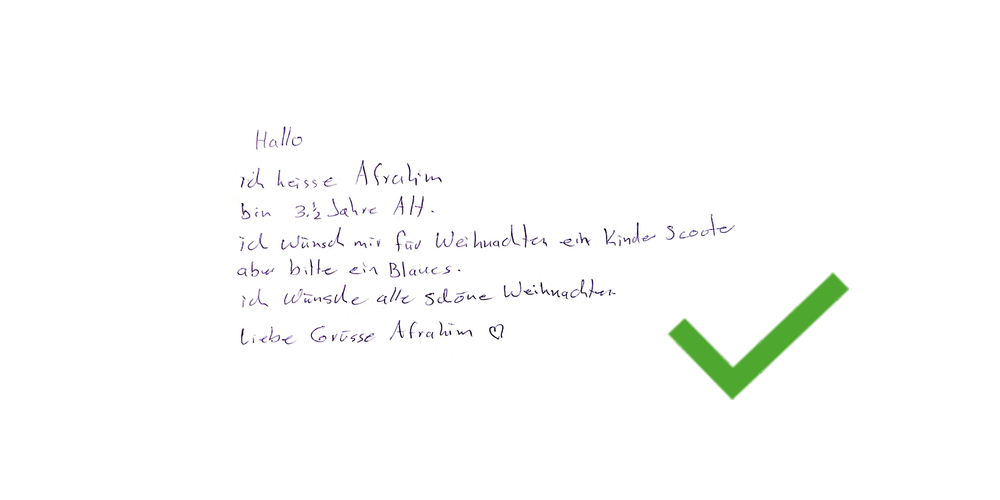 Hallo
ich heisse Afrahim
bin 3.½ Jahre Alt.
ich Wünsch mir für Weihnachten ein Kinder Scooter
aber bitte ein Blaues.
ich Wünsche alle schöne Weihnachten.
Liebe Grüsse Afrahim ♡